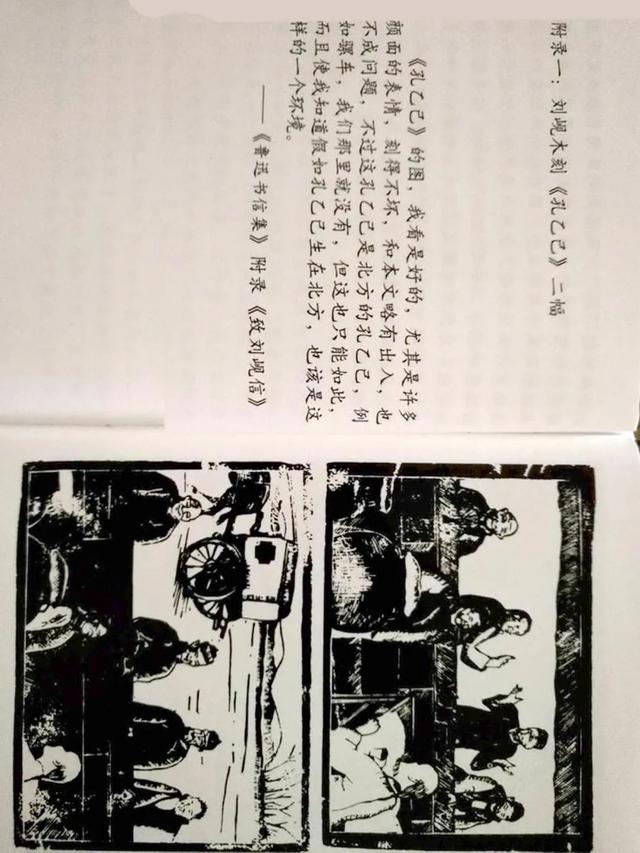 附录一：刘岘木刻《孔乙己》二幅
《孔乙己》的图，我看是好的，尤其是许多
颜面的表情，刻得不坏，和本文略有出入，也
不成问题，不过这孔乙己是北方的孔乙己，例
如骡车，我们那里就没有，但这也只能如此，
而且使我知道假如孔乙己生在北方，也该是这
样的一个环境。
——《鲁迅书信集》附录《致刘岘信》